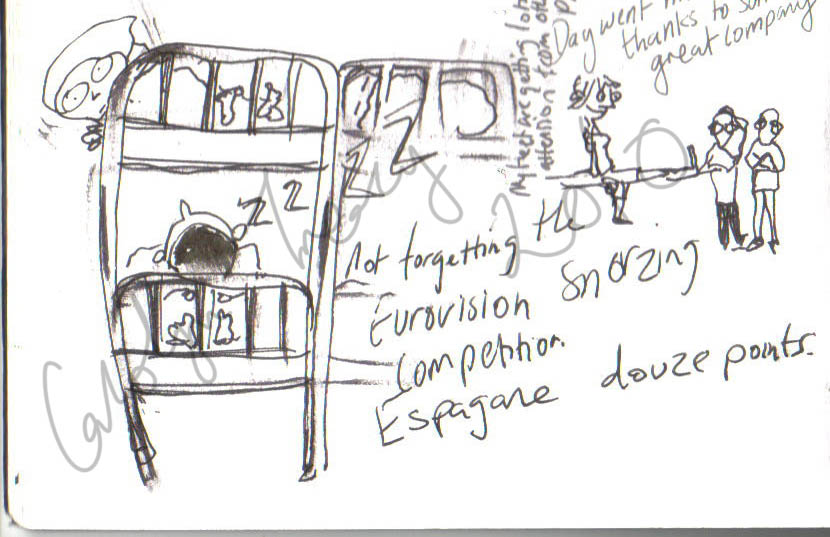 Day went
thanks to
great company
My feet are getting lots
attention from
Z
Z
Z
Z Z
Not forgetting the
Eurovision Snorzing
Competition.
Espagane douze points.